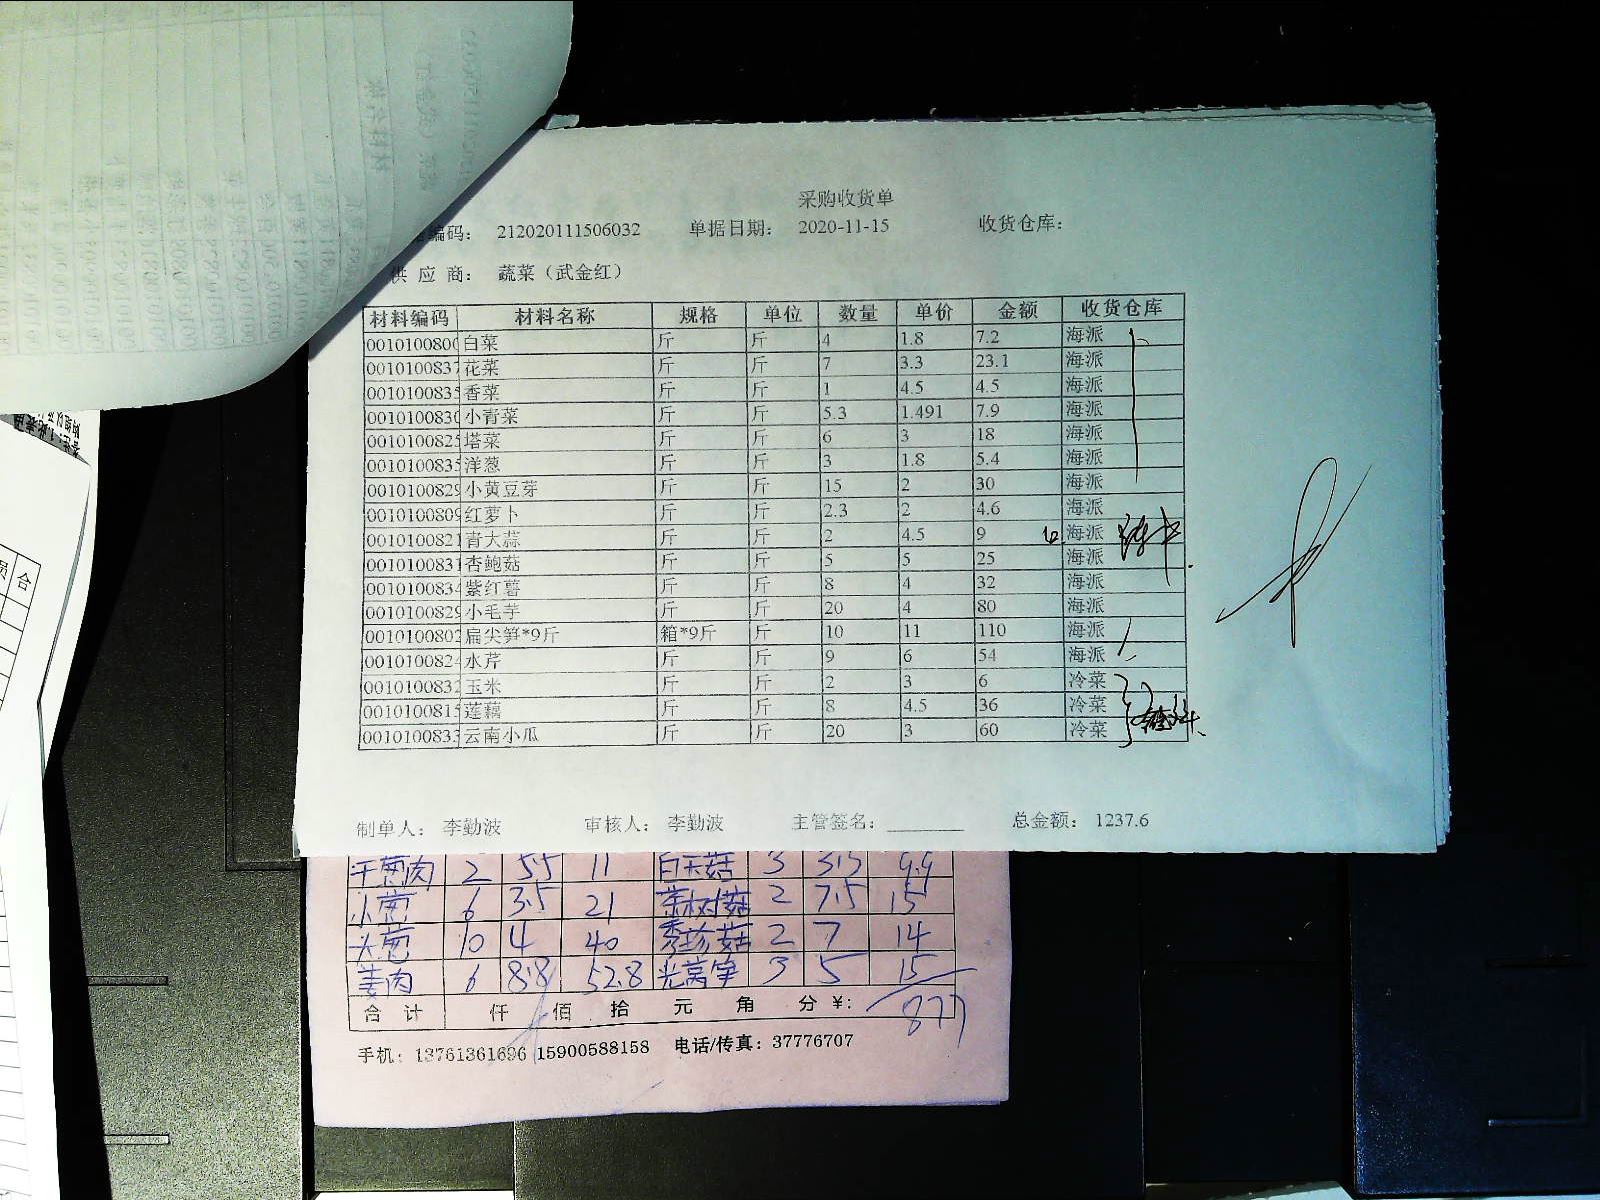 采购收货单
编码： 212020111506032 单据日期： 2020-11-15 收货仓库：
供 应 商： 蔬菜（武金红）
材料编码 材料名称 规格 单位 数量 单价 金额 收货仓库
0010100800 白菜 斤 斤 4 1.8 7.2 海派
0010100837 花菜 斤 斤 7 3.3 23.1 海派
0010100835 香菜 斤 斤 1 4.5 4.5 海派
0010100830 小青菜 斤 斤 5.3 1.491 7.9 海派
0010100825 塔菜 斤 斤 6 3 18 海派
0010100835 洋葱 斤 斤 3 1.8 5.4 海派
0010100829 小黄豆芽 斤 斤 15 2 30 海派
0010100809 红萝卜 斤 斤 2.3 2 4.6 海派
0010100821 青大蒜 斤 斤 2 4.5 9 海派
0010100831 杏鲍菇 斤 斤 5 5 25 海派
0010100834 紫红薯 斤 斤 8 4 32 海派
0010100829 小毛芋 斤 斤 20 4 80 海派
0010100802 扁尖笋*9斤 箱*9斤 斤 10 11 110 海派
0010100824 水芹 斤 斤 9 6 54 海派
0010100832 玉米 斤 斤 2 3 6 冷菜
0010100815 莲藕 斤 斤 8 4.5 36 冷菜
0010100833 云南小瓜 斤 斤 20 3 60 冷菜
制单人： 李勤波 审核人： 李勤波 主管签名： 总金额： 1237.6
干葱肉 2 5.5 11 白玉菇 3 3.3 9.9
小葱 6 3.5 21 茶树菇 2 7.5 15
大葱 10 4 40 秀珍菇 2 7 14
姜肉 6 8.8 52.8 光莴笋 3 5 15
合 计 仟 佰 拾 元 角 分 ¥: 877
手机：13761361696 15900588158 电话/传真：37776707